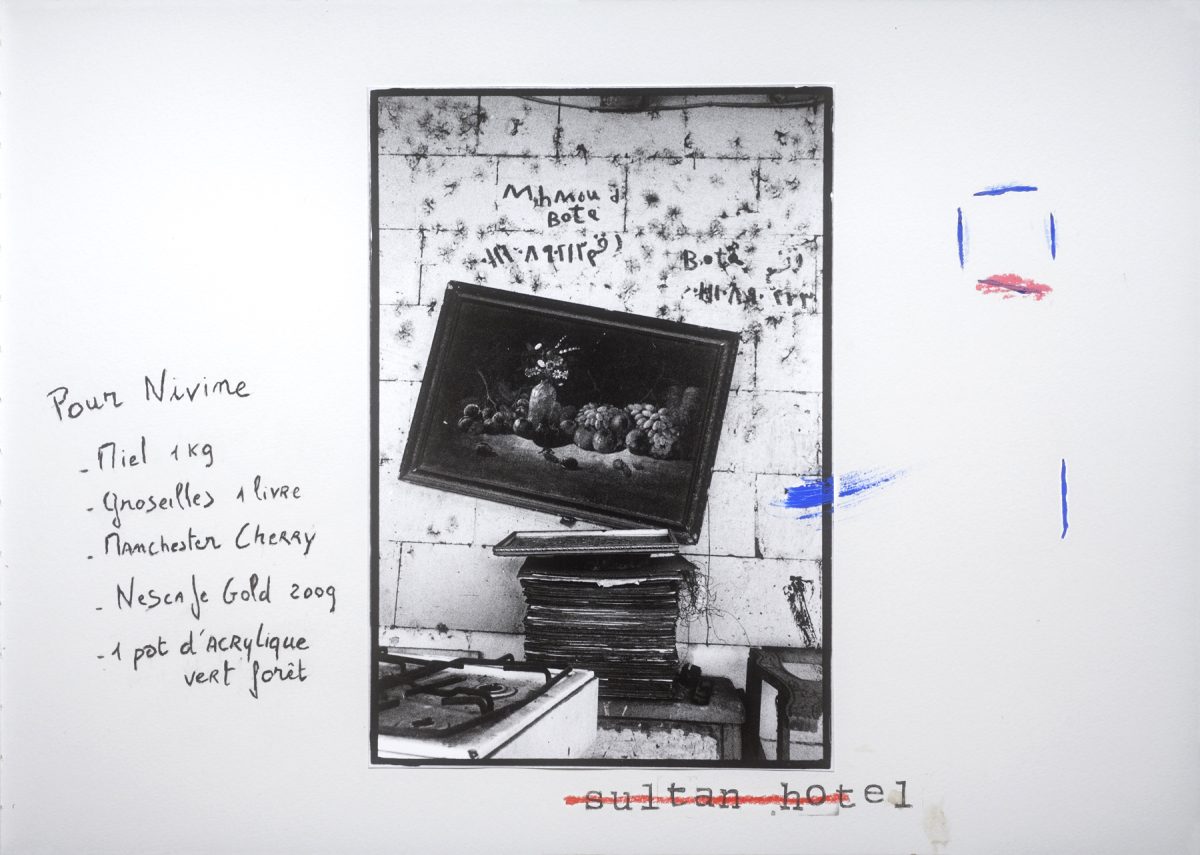 Pour Nivine
- Miel 1 Kg
- groseilles 1 livre
- Manchester Cherry
- Nescafe Gold 200g
- 1 pot d'Acrylique
vert forêt
Mihmoud
Bota
Bota
sultan hotel